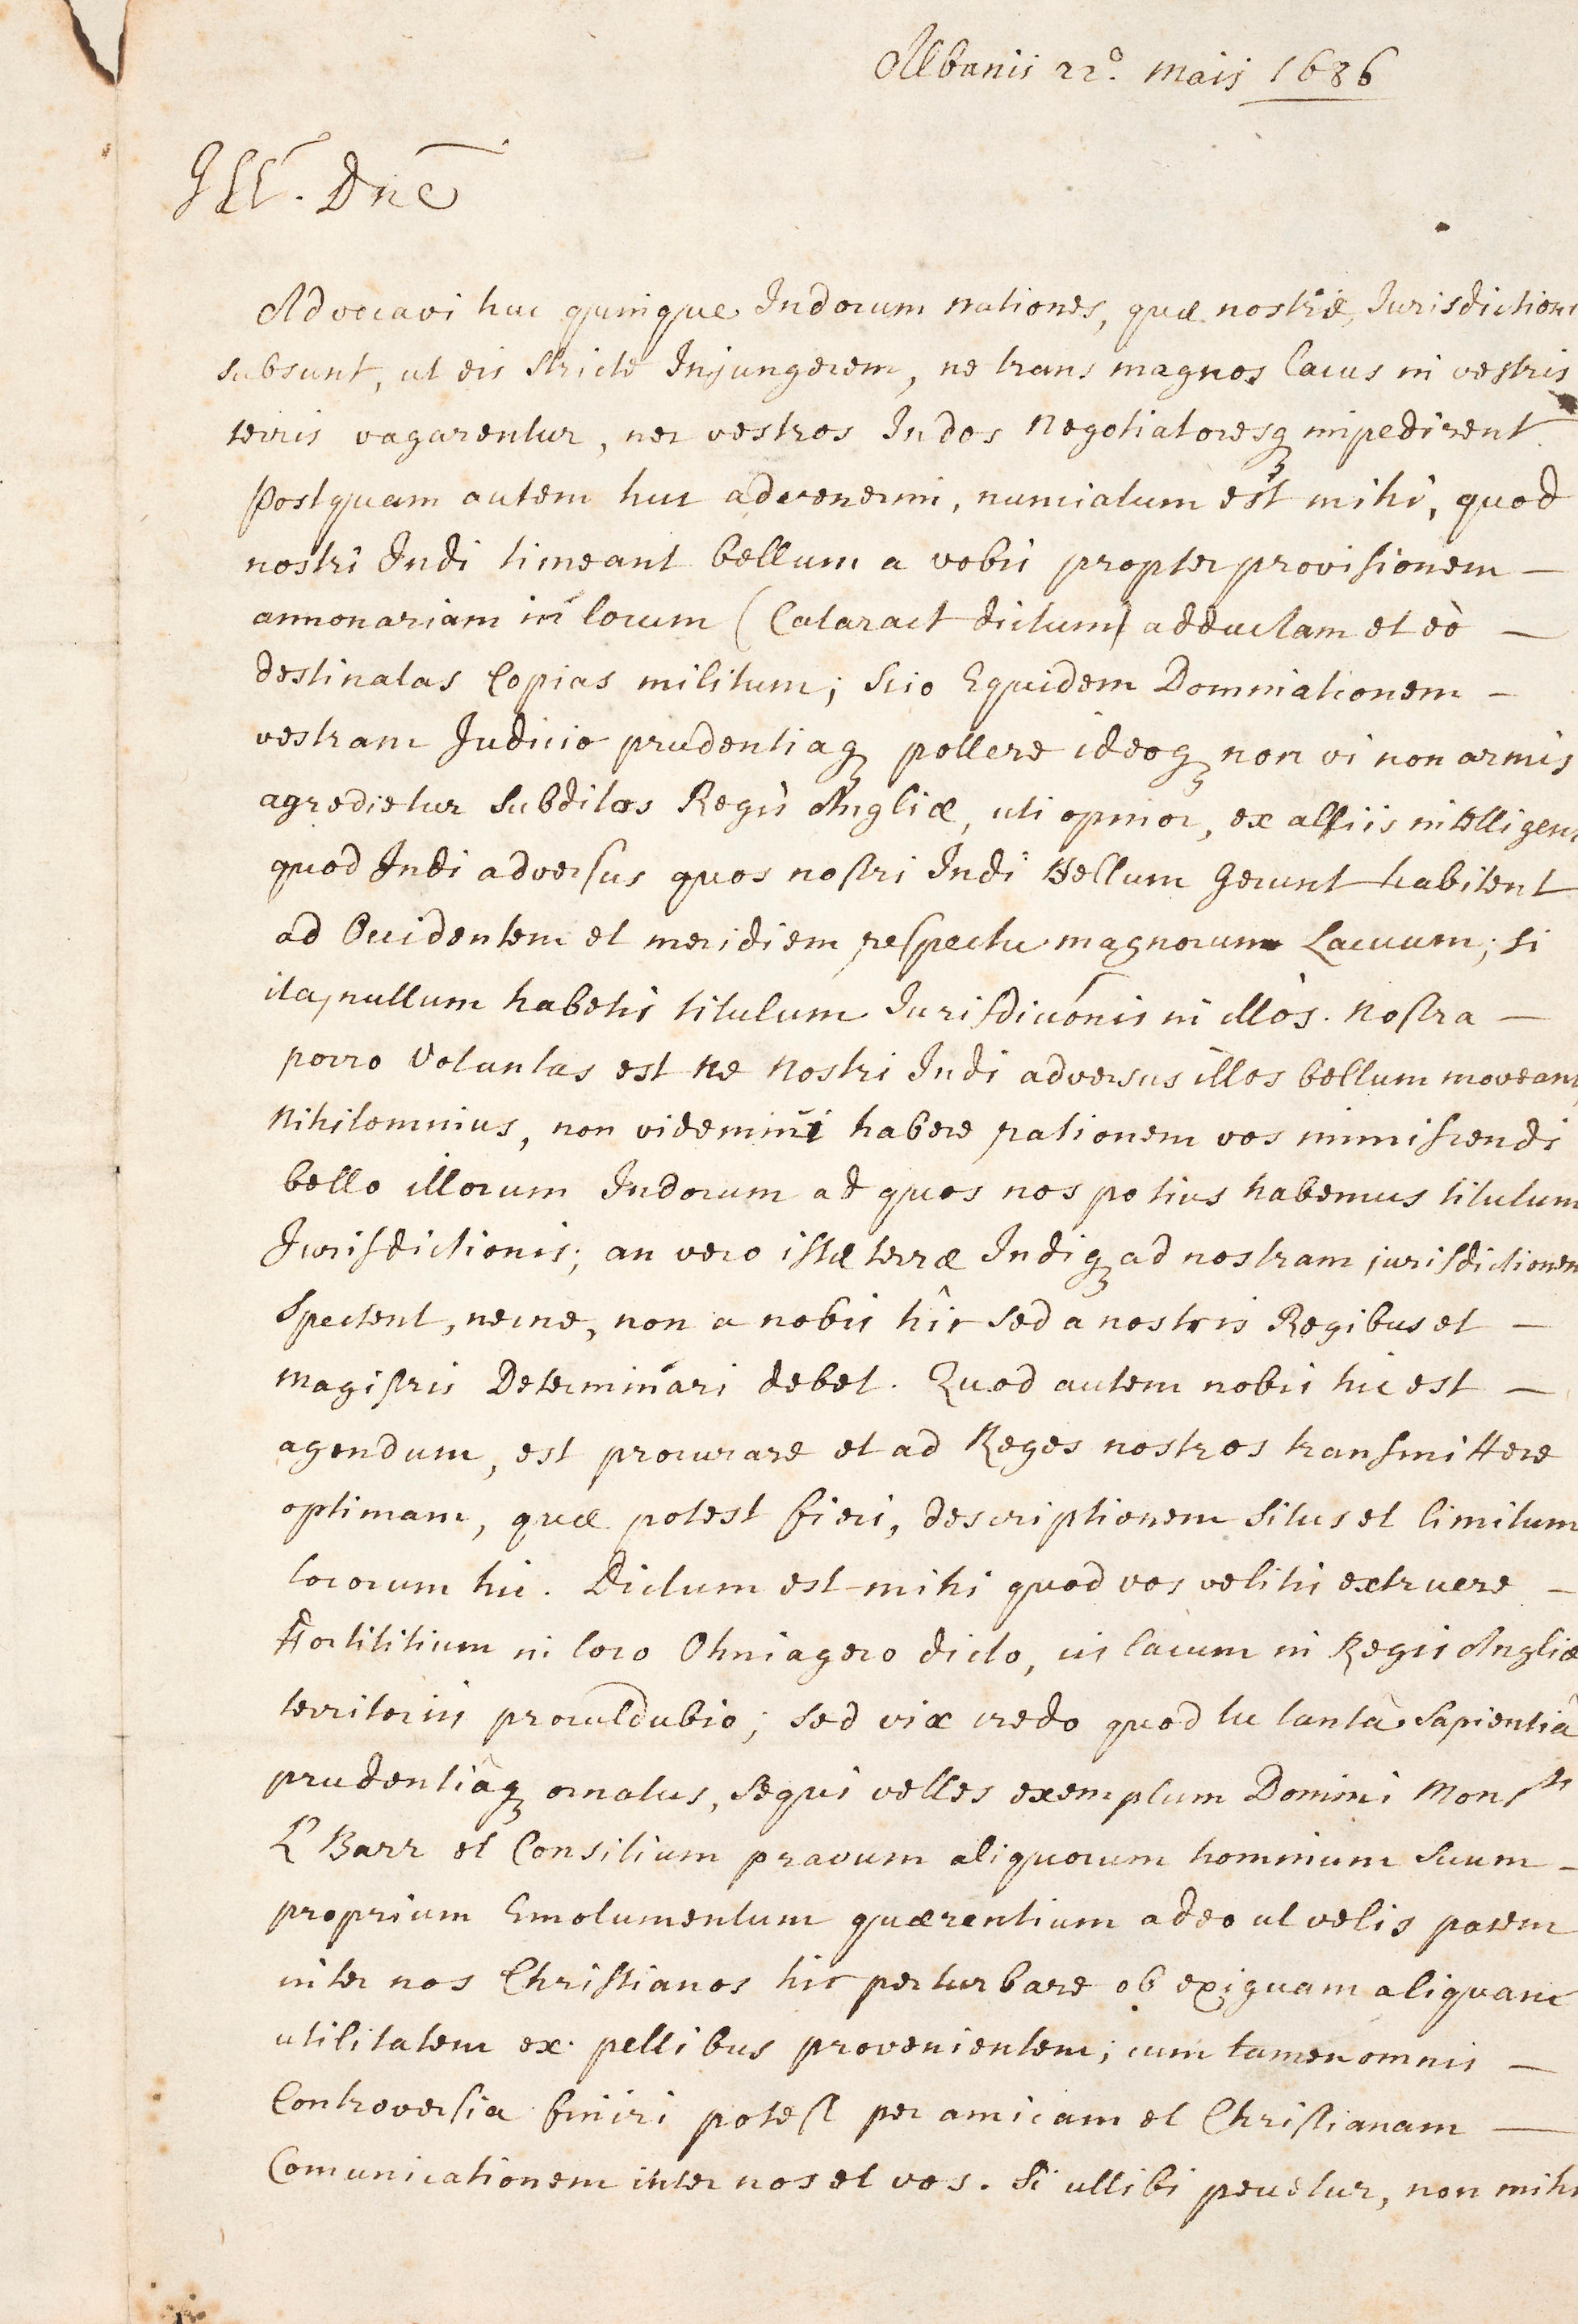 Albanii 22º. Maij 1686
Ill. Dne
Advocavi huc quinque Indorum nationes, quæ nostræ Jurisdictioni
subsunt, ut eis stricte Injungerem, ne trans magnos lacus in vestris
terris vagarentur, nec vestros Indos Negotiatoresq impedirent
Postquam autem huc advenerim, nunciatum est mihi, quod
nostri Indi timeant bellum a vobis propter provisionem –
annonariam in locum (Cataract dictum) adductam et eò –
destinatas Copias militum; Scio Equidem Dominationem –
vestram Judicio prudentiaq pollere ideoq non vi non armis
agredietur Subditos Regis Angliæ, uti opinor, ex aliis intelligens
quod Indi adversus quos nostri Indi Bellum Gerunt habitent
ad Occidentem et meridiem respectu magnorum Lacuum; si
ita, nullum habetis titulum Jurisdicõnis in illos. Nostra –
porro Voluntas est ne Nostri Indi adversus illos bellum moveant
Nihilominus, non videmini habere rationem vos immiscendi
bello illorum Indorum ad quos nos potius habemus titulum
Jurisdictionis; an vero istæ terræ Indiq ad nostram jurisdictionem
Spectent, necne, non a nobis hîc sed a nostris Regibus et –
Magistris Determinari debet. Quod autem nobis hic est –
agendum, est procurare et ad Reges nostros transmittere
optimam, quæ potest fieri, descriptionem Situs et limitum
locorum hic. Dictum est mihi quod vos velitis extruere –
Fortilitium in loco Ohniagero dicto, cis lacum in Regis Angliæ
territoriis proculdubio; sed vix credo quod tu tantâ Sapientiâ
prudentiâq ornatus, Sequi velles exemplum Domini Mons
L Barr et Consilium pravum aliquorum hominum Suum –
proprium Emolumentum quærentium adeo ut velis pacem
inter nos Christianos hic perturbare ob exiguam aliquam
utilitatem ex pellibus provenientem; cum tamen omnis –
Controversia finiri potest per amicam et Christianam –
Comunicationem inter nos et vos. Si ullibi pecetur, non mihi